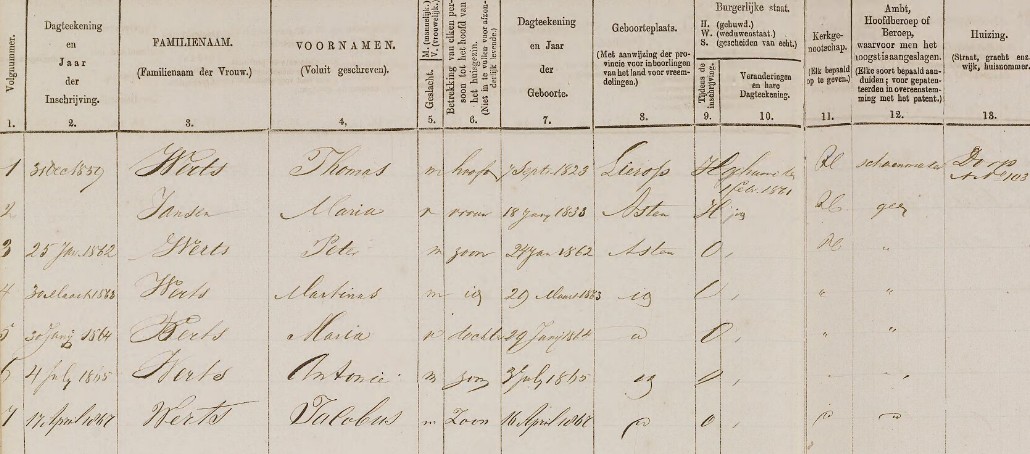 Volgnummer.
Dagteekening
en
Jaar
der
Inschrijving.
FAMILIENAAM.
(Familienaam der Vrouw.)
VOORNAMEN.
(Voluit geschreven).
M. (mannelijk.)
V. (vrouwelijk.)
Geslacht.
Betrekking van elken per-
soon tot het hoofd van
het huisgezin.
(Niet in te vullen voor afzon-
derlijk levende.)
Dagteekening
en Jaar
der
Geboorte.
Geboorteplaats.
(Met aanwijzing der pro-
vincie voor inboorlingen
van het land voor vreem-
delingen.)
Burgerlijke staat.
H. (gehuwd.)
W. (weduwenstaat.)
S. (gescheiden van echt.)
Tijdens de
inschrijving.
Veranderingen
en hare
Dagteekening.
Kerkge-
nootschap.
(Elk bepaald
op te geven.)
Ambt,
Hoofdberoep of
Beroep,
waarvoor men het
hoogst is aangeslagen.
(Elke soort bepaald aan-
duiden; voor gepaten-
teerden in overeenstem-
ming met het patent.)
Huizing.
(Straat, gracht enz.
wijk, huisnommer.)
1. 2. 3. 4. 5. 6. 7. 8. 9. 10. 11. 12. 13.
1 31 Dec 1859 Werts Thomas m hoofd 7 Sept. 1823 Lierop H 1 febr. 1861 schoenmaker Dorp 103
2 Jansen Maria v vrouw 18 jany 1833 Asten H geen
3 25 Jan. 1862 Werts Peter m zoon 24 jan 1862 Asten O "
4 30 Maart 1863 Werts Martinus m id 29 Maart 1863 id O " "
5 30 Junij 1864 Werts Maria v dochter 29 Junij 1864 O " "
6 4 july 1865 Werts Antonie m zoon 3 july 1865 id O
7 17 April 1867 Werts Jacobus m Zoon 16 April 1867 O